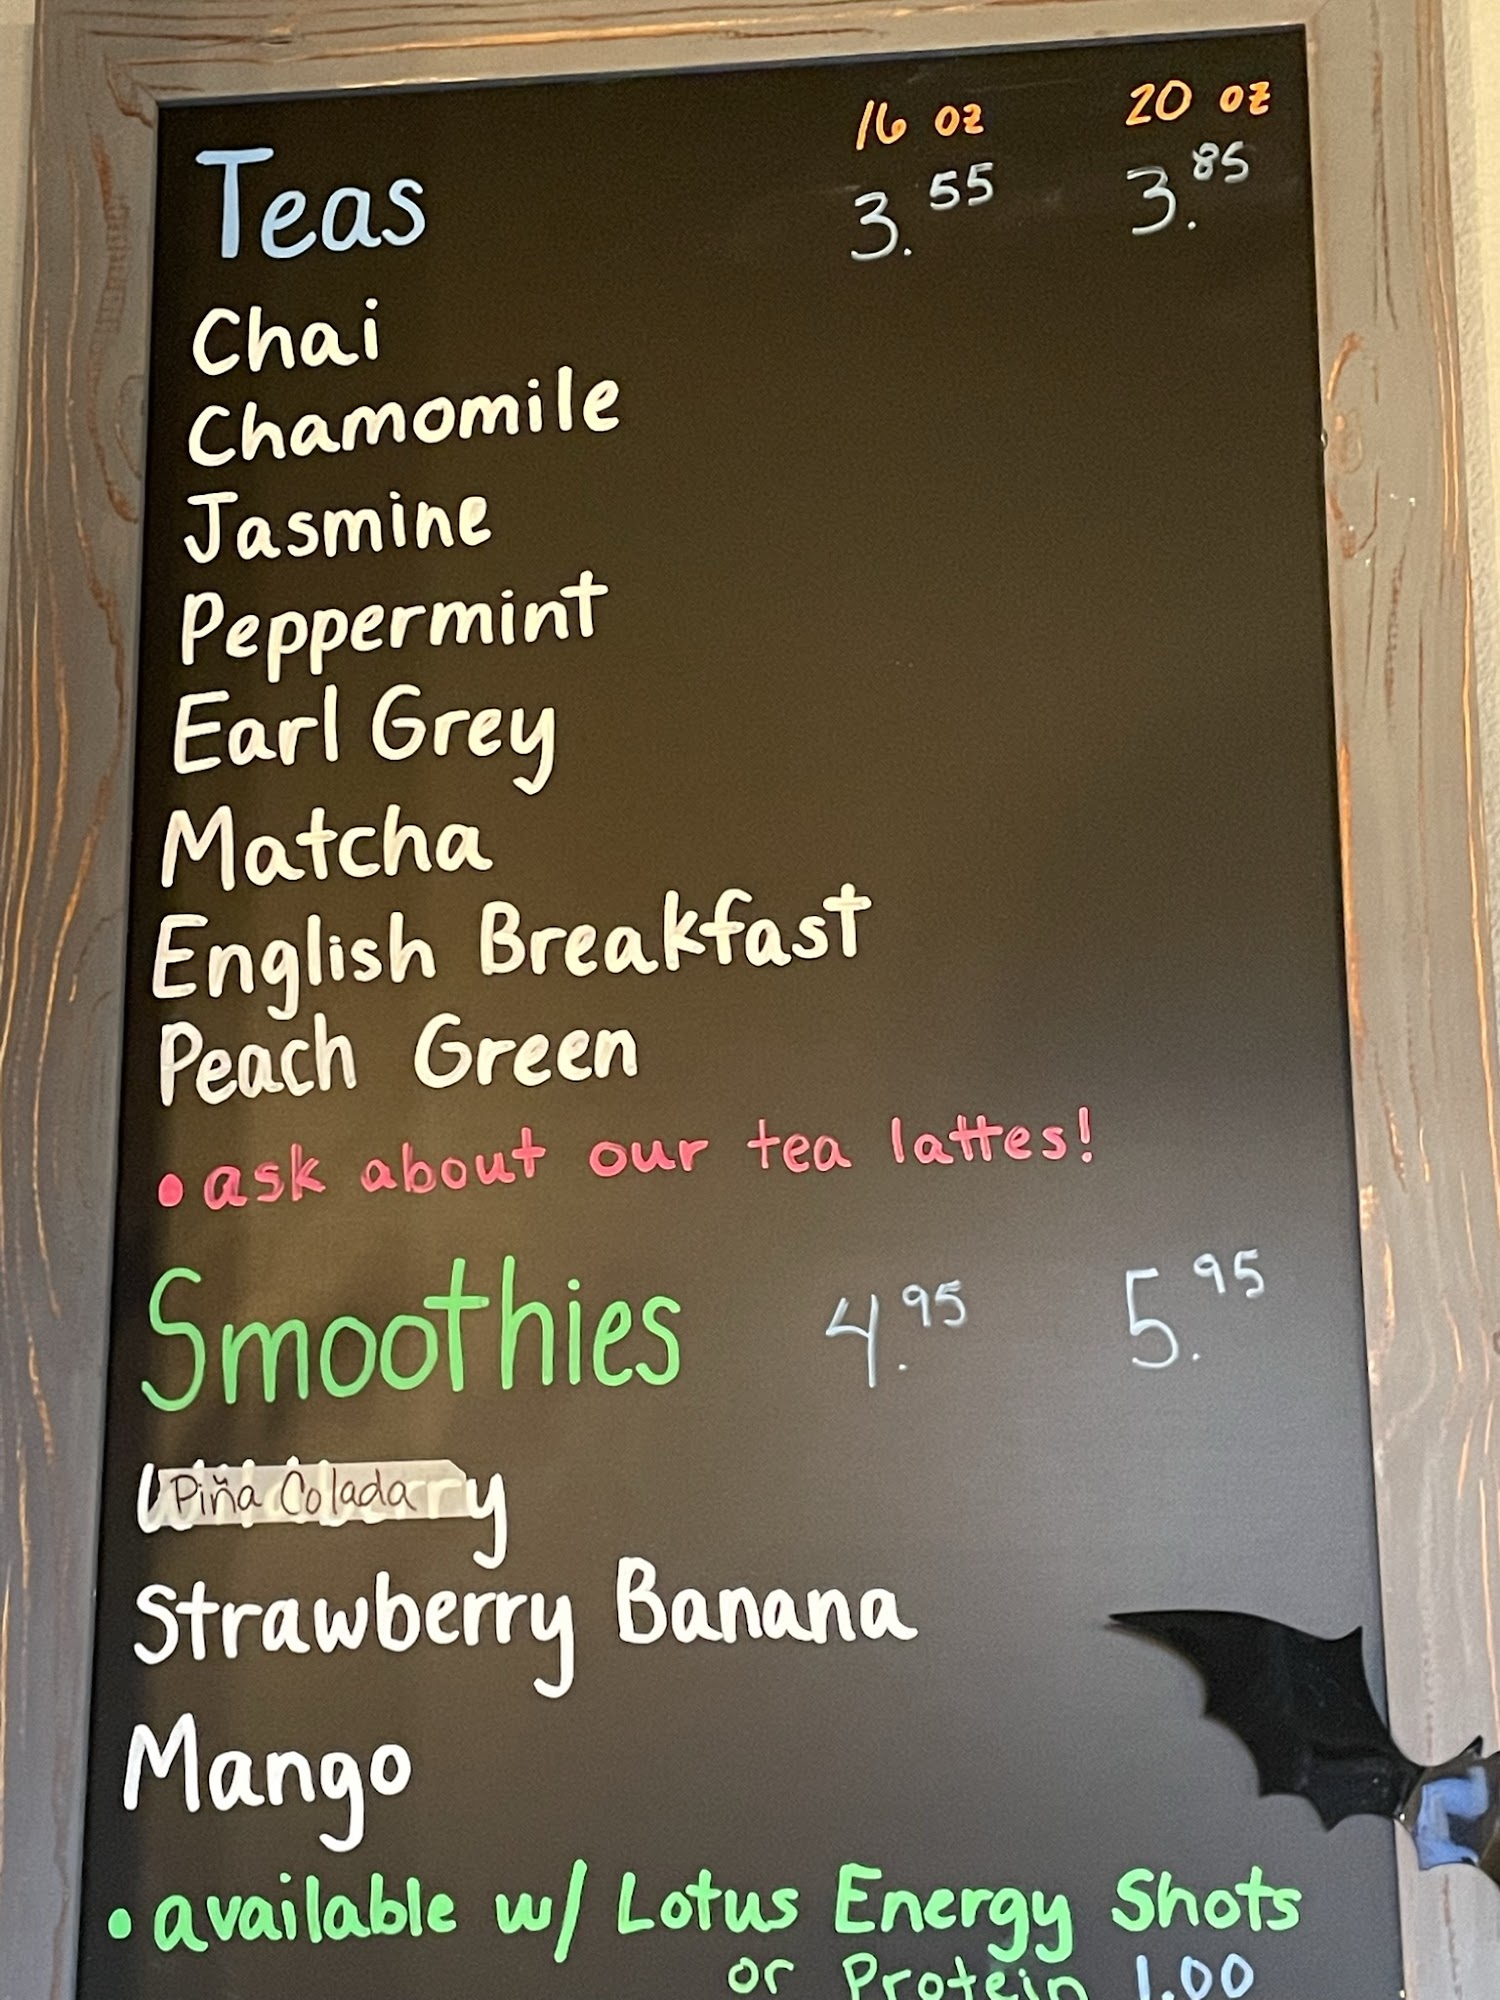 16 oz 20 oz
Teas 3.55 3.85
Chai
Chamomile
Jasmine
Peppermint
Earl Grey
Matcha
English Breakfast
Peach Green
• ask about our tea lattes!
Smoothies 4.95 5.95
Piña Colada
Strawberry Banana
Mango
• available w/ Lotus Energy Shots
or Protein 1.00